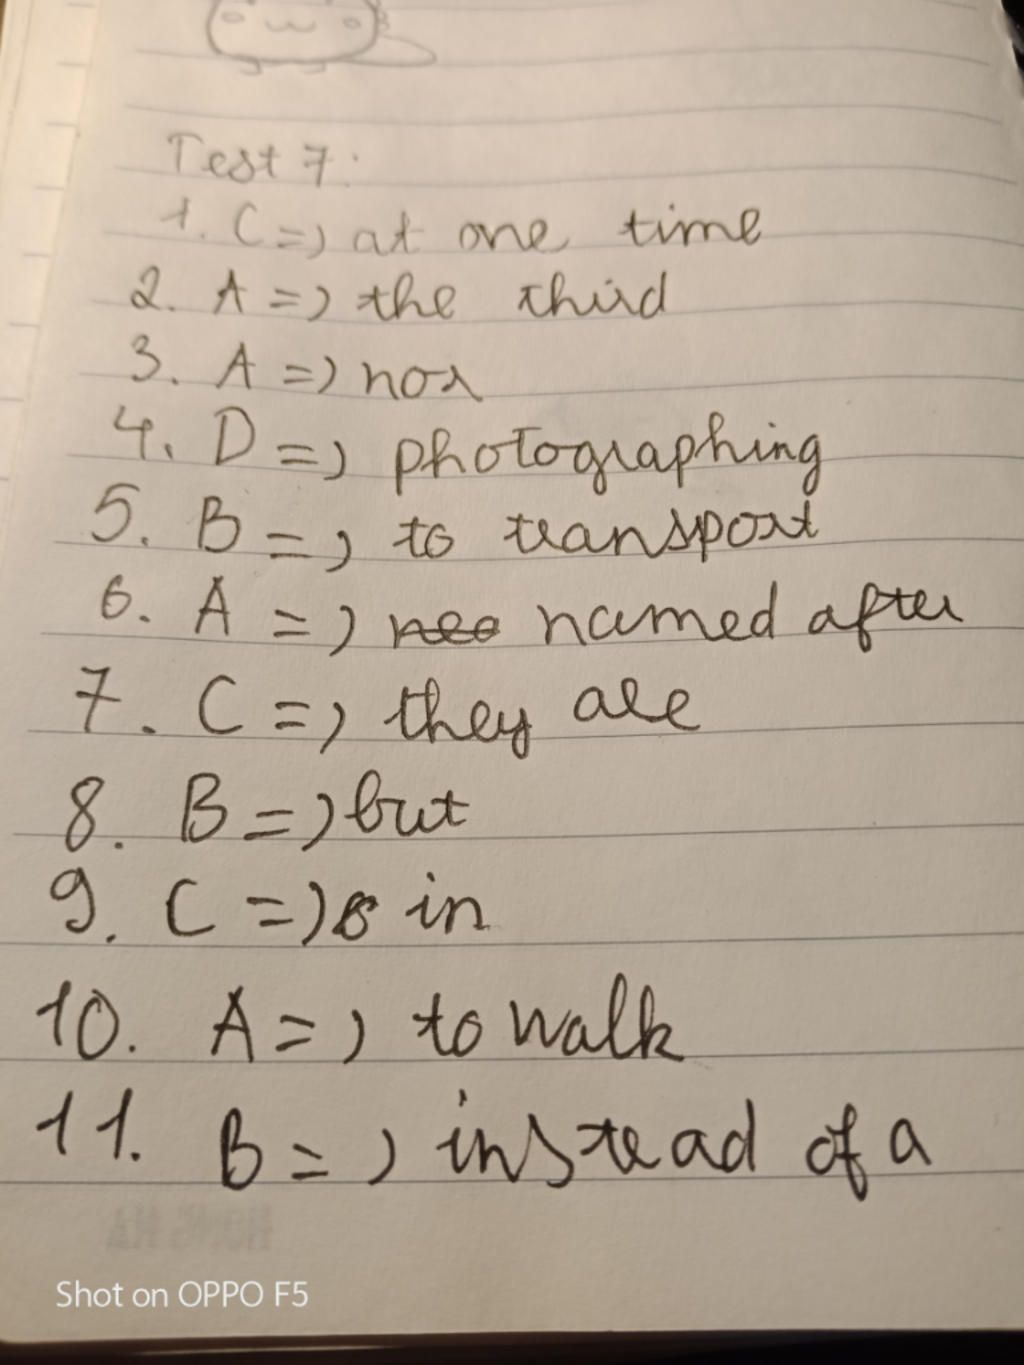 Test 7:
1. C => at one time
2. A => the third
3. A => nor
4. D => photographing
5. B => to transport
6. A => named after
7. C => they are
8. B => but
9. C => in
10. A => to walk
11. B => instead of a
Shot on OPPO F5